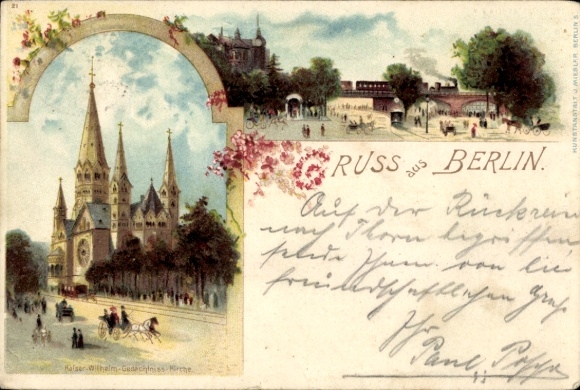 21
GRUSS aus BERLIN.
Auf der Rückreise
nach Thorn begriffen
sende Ihnen von hier
freundschaftlichen Gruß
Ihr
Paul
Kaiser-Wilhelm-Gedächtniss-Kirche.